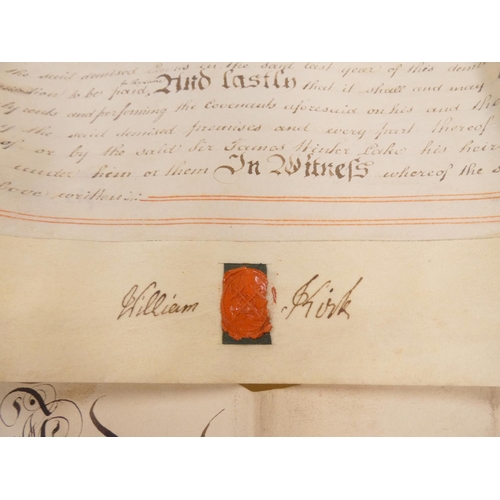 the said demised Premises in the said last year of this demise
to be paid. And lastly that it shall and may
and performing the Covenants aforesaid on his and their
the said demised premises and every part thereof
of or by the said Sir James Winter Lake his heirs
under him or them In Witness whereof the s
above written:
William Kirk